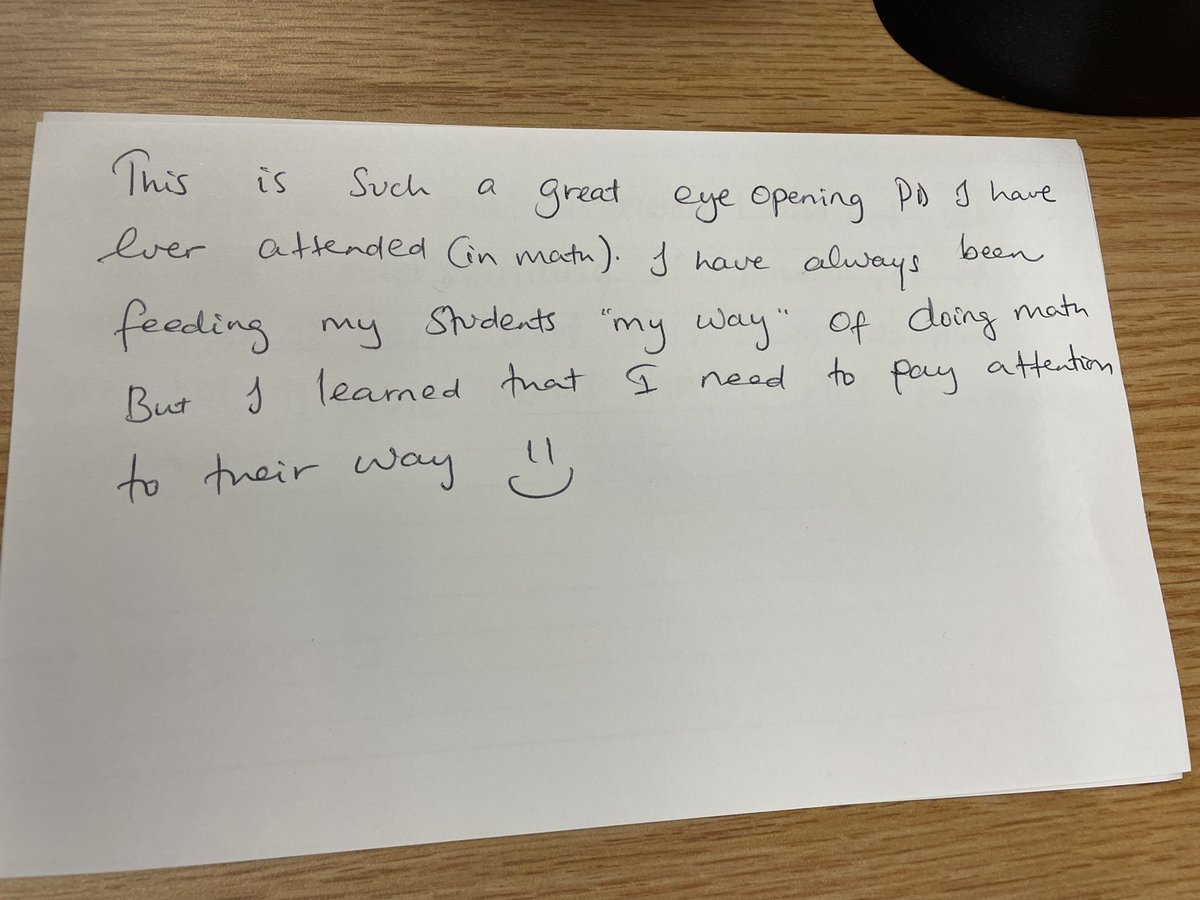 This is such a great eye opening PD I have
ever attended (in math). I have always been
feeding my students "my way" of doing math
But I learned that I need to pay attention
to their way